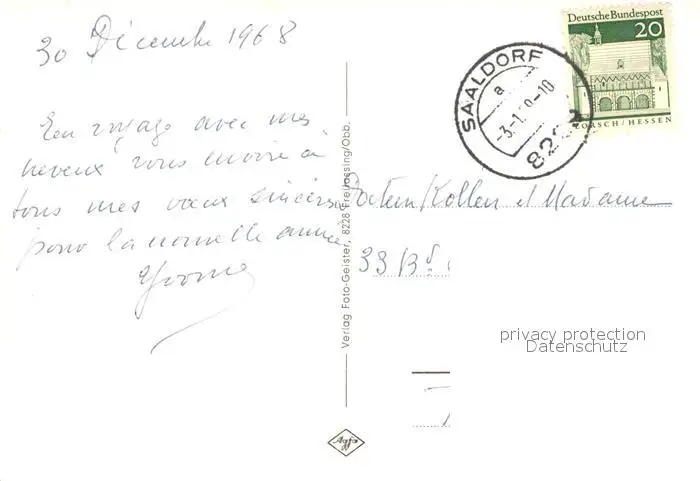 30 Décembre 1968
En voyage avec mes
neveux vous envoie à
tous mes vœux sincères
pour la nouvelle année
Yvonne
Verlag Foto-Geister, 8228 Freilassing/Obb.
Agfa
Deutsche Bundespost
20
LORSCH/HESSEN
SAALDORF
a
-3.-1.
-10
822
Kollen et Madame
33 Bd
privacy protection
Datenschutz